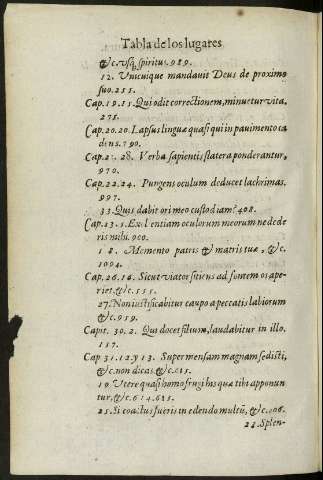 Tabla de los lugares
&c. vsq; spiritus. 989.
12. Vnicuique mandauit Deus de proximo
suo. 255.
Cap. 19. 15. Qui odit correctionem, minuetur vita.
275.
Cap. 20. 20. Lapsus linguæ quasi qui in pauimento ca
dens. 790.
Cap. 21. 28. Verba sapientis statera ponderantur,
970.
Cap. 22. 24. Pungens oculum deducet lachrimas.
997.
33. Quis dabit ori meo custodiam? 408.
Cap. 23. 5. Extollentiam oculorum meorum ne dede
ris mihi. 900.
18. Memento patris & matris tuæ, &c.
1094.
Cap. 26. 16. Sicut viator sitiens ad fontem os ape-
riet. &c. 555.
27. Non iustificabitur caupo a peccatis labiorum
&c. 959.
Capit. 30. 2. Qui docet filium, laudabitur in illo.
117.
Cap 31. 12. y 13. Super mensam magnam sedisti,
&c. non dicas. &c. 615.
19. Vtere quasi homo frugi his quæ tibi apponun
tur, &c. 614. 615.
25. Si coactus fueris in edendo multũ, &c. 606.
23. Splen-